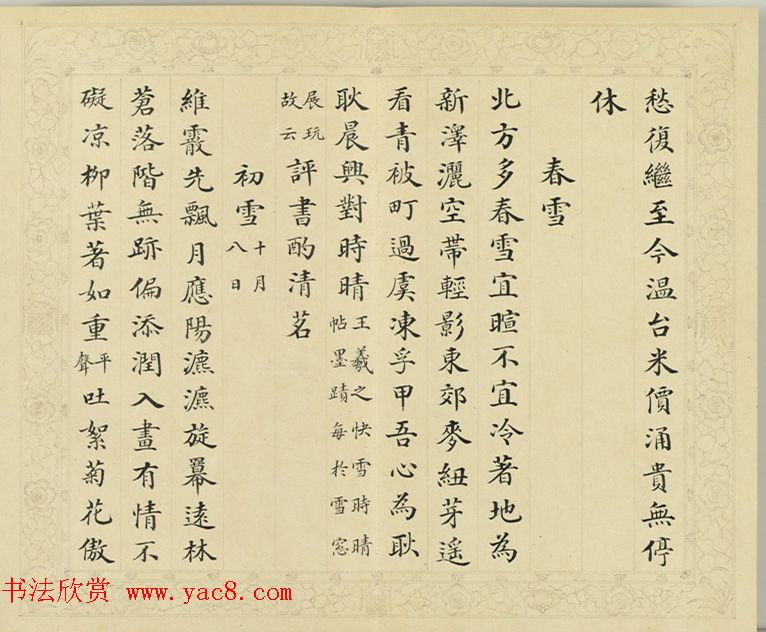 愁復繼至今温台米價涌貴無停
休
春雪
北方多春雪宜暄不宜冷著地為
新澤灑空帶輕影東郊麥紐芽遥
看青被町過虞凍孚甲吾心為耿
耿晨興對時晴王羲之快雪時晴帖墨蹟每於雪窓
展玩故云評書酌清茗
初雪十月八日
維霰先飄月應陽瀌瀌旋羃遠林
蒼落階無跡偏添潤入畫有情不
礙凉柳葉著如重平聲吐絮菊花傲
书法欣赏 www.yac8.com